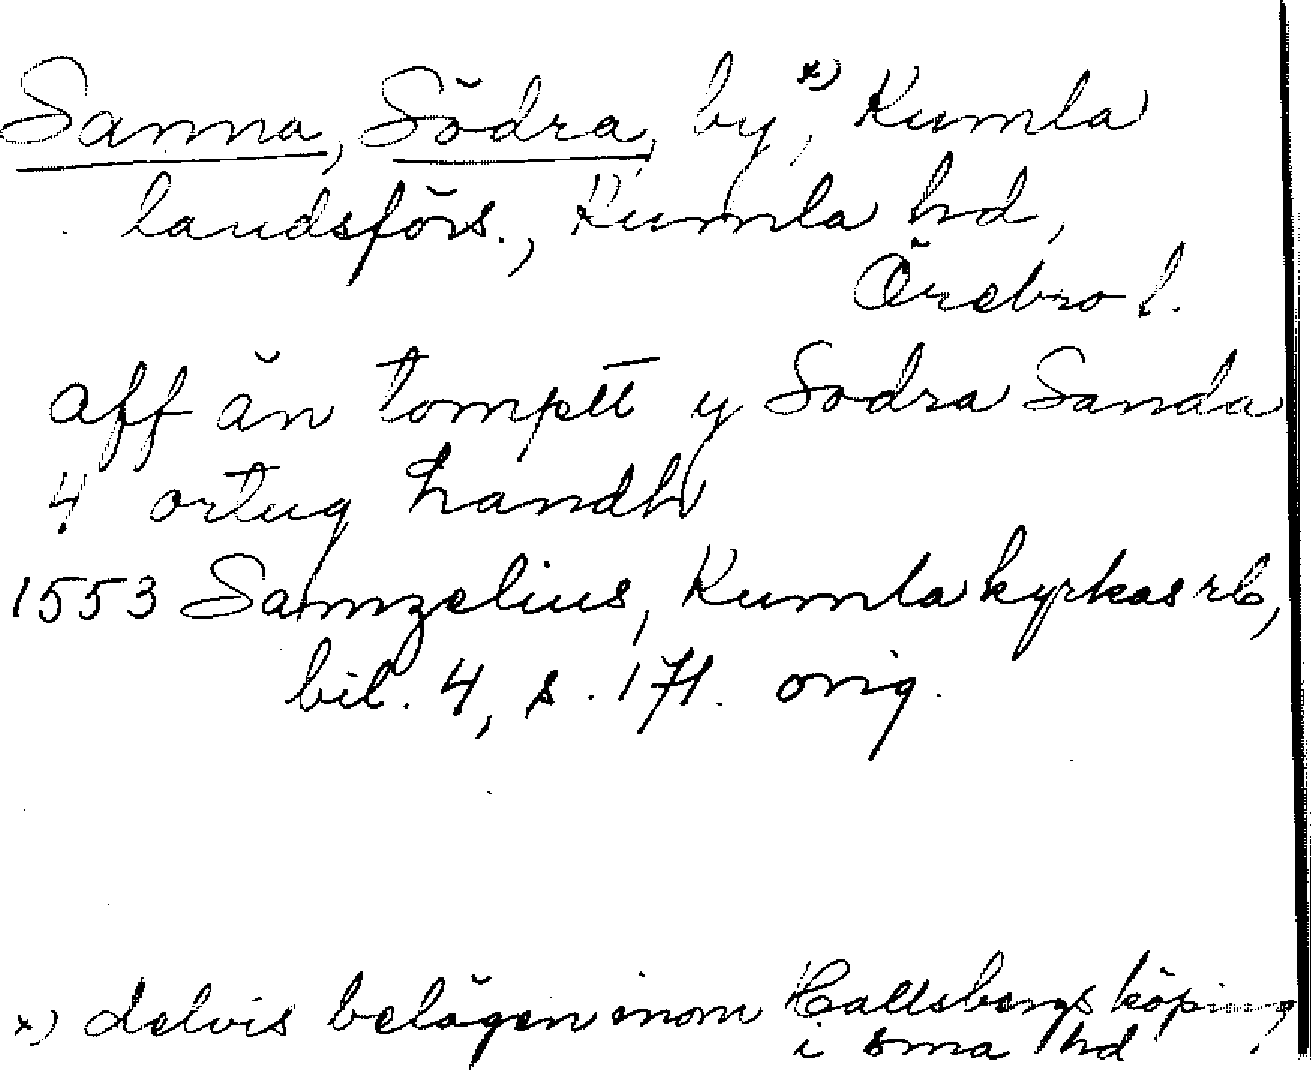 Sanna, Södra, by x), Kumla
landsförs., Kumla hd,
Örebro l.
aff än tomptt y Sodra Sanda
4 ortug landh
1553 Samzelius, Kumla kyrkas rb,
bil. 4, s. 171. orig.
x) delvis belägen inom Hallsbergs köping
i sma hd